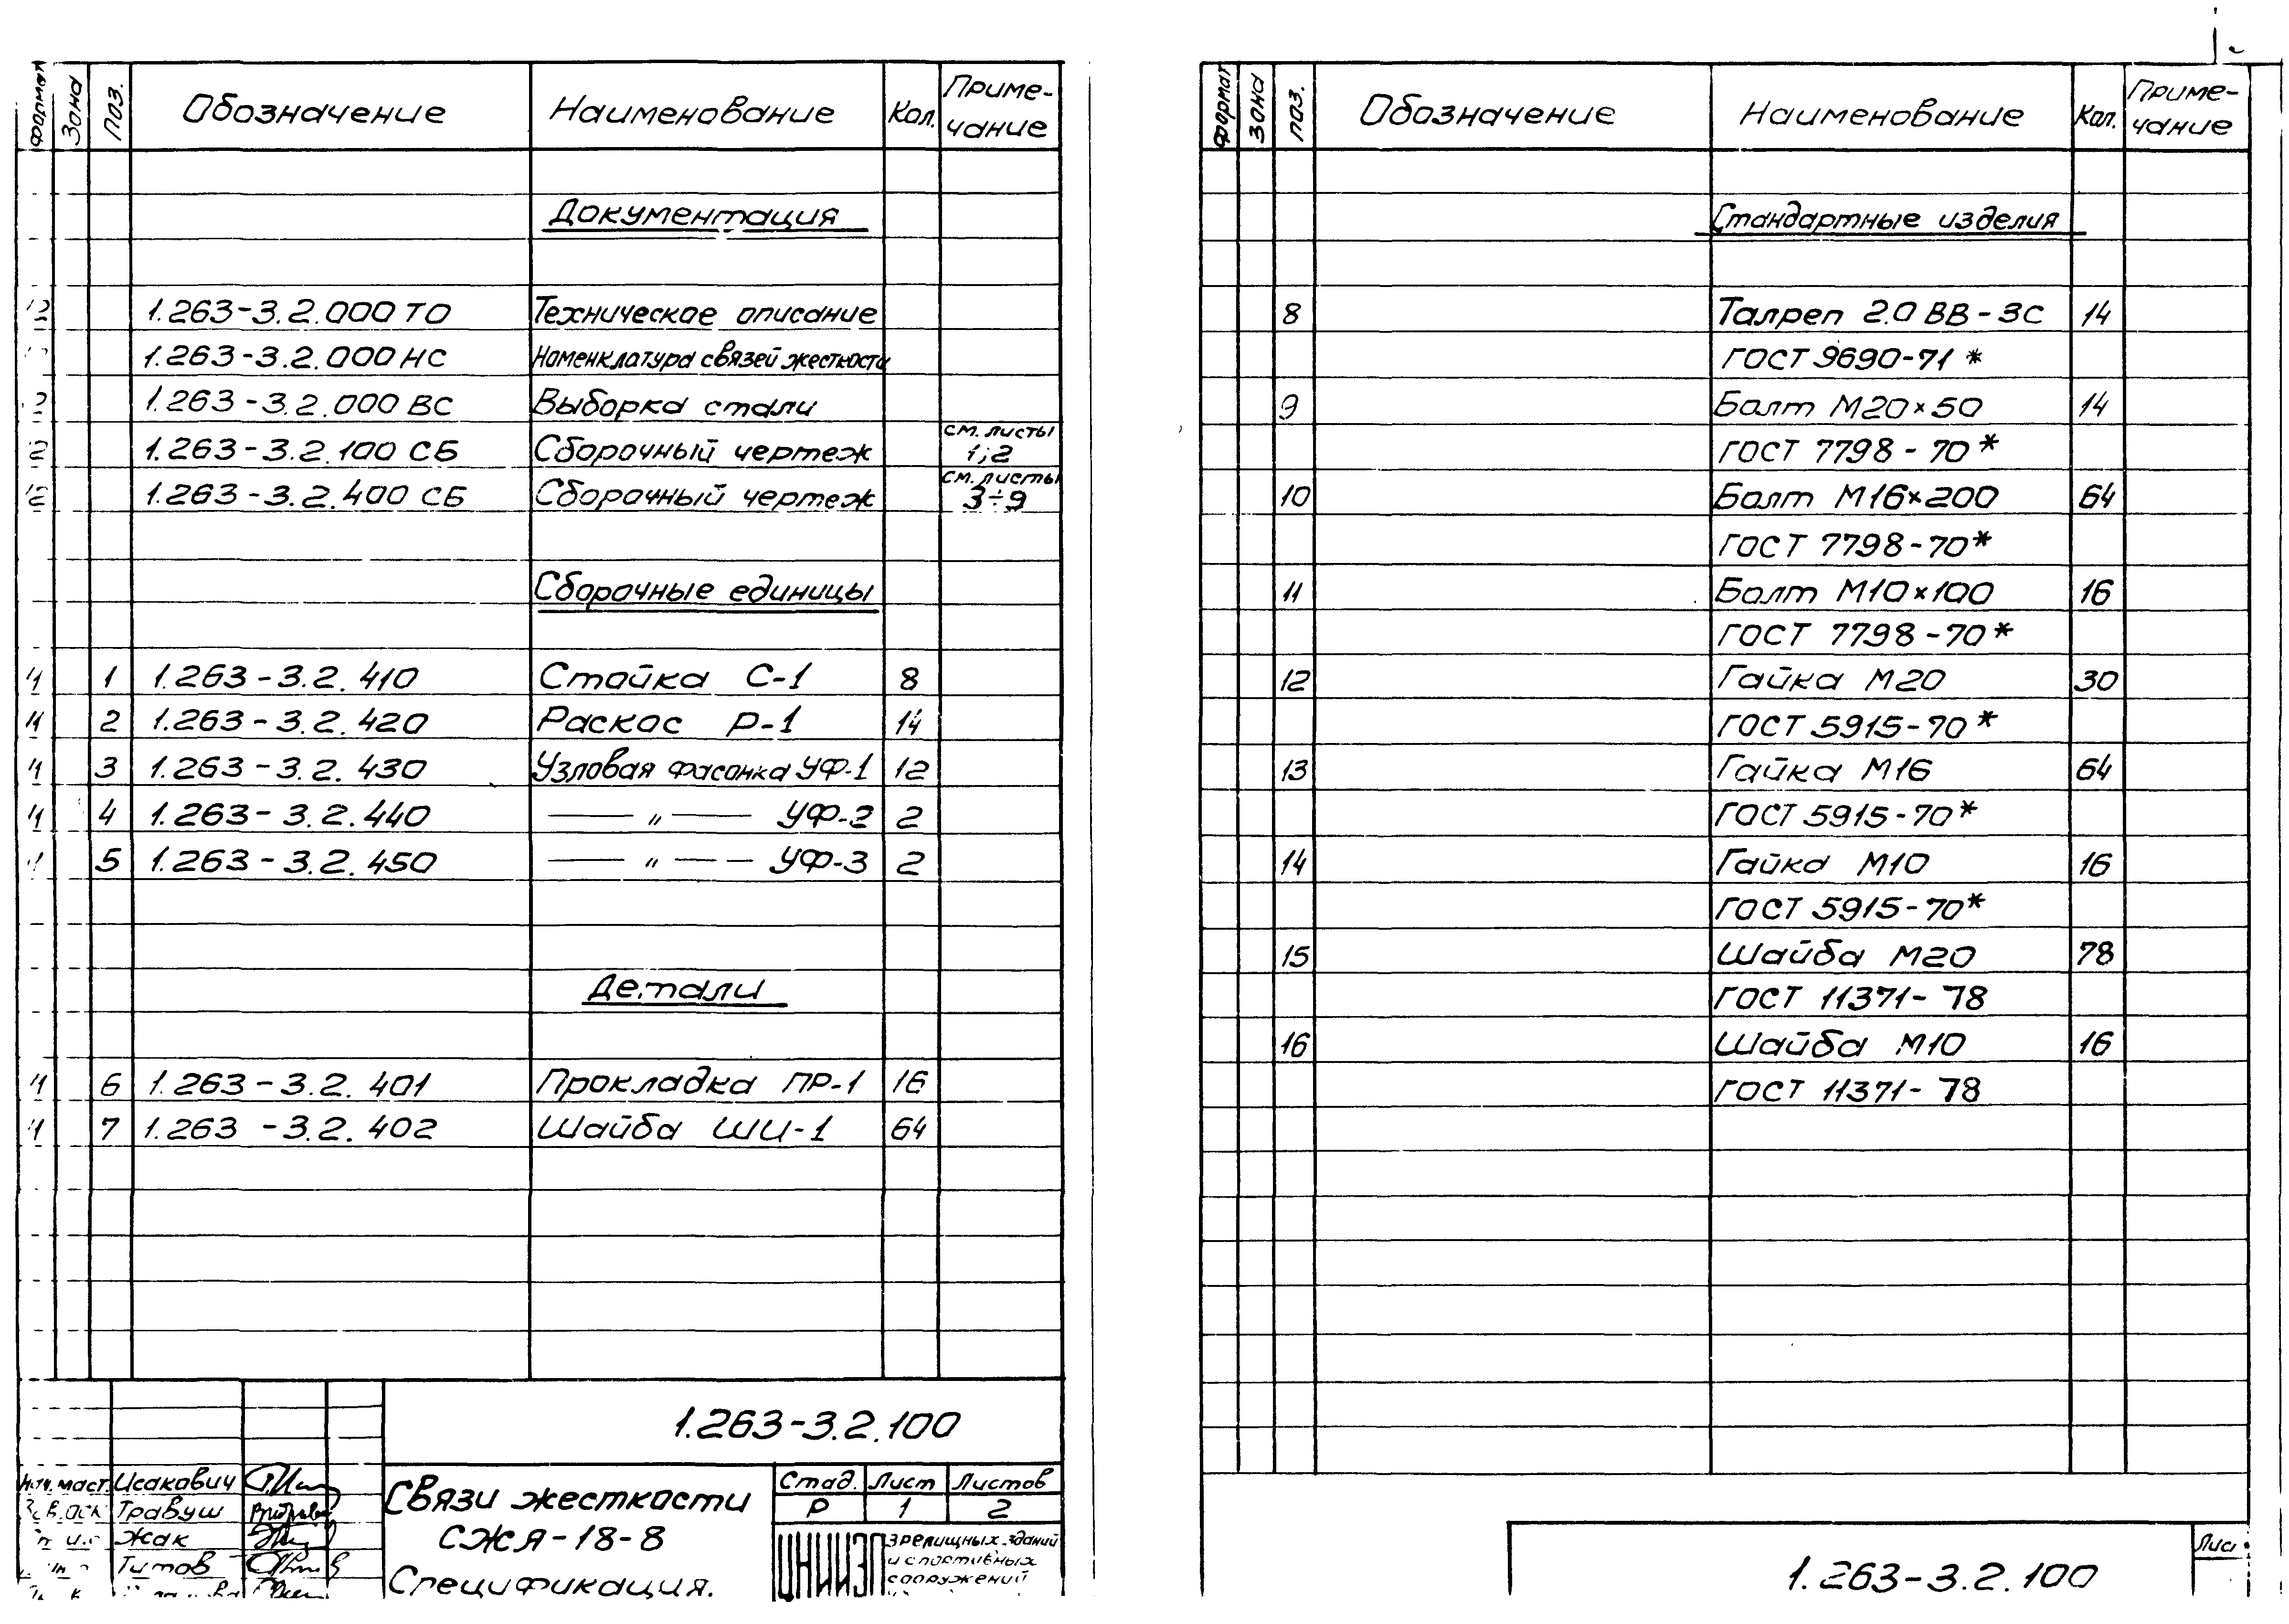 формат Зона Поз. Обозначение Наименование Кол. Приме-
чание
Документация
1.263-3.2.000 ТО Техническое описание
1.263-3.2.000 НС Номенклатура связей жесткости
1.263-3.2.000 ВС Выборка стали
1.263-3.2.100 СБ Сборочный чертеж см. листы 1;2
1.263-3.2.400 СБ Сборочный чертеж см. листы 3÷9
Сборочные единицы
1 1.263-3.2.410 Стойка С-1 8
2 1.263-3.2.420 Раскос Р-1 14
3 1.263-3.2.430 Узловая фасонка УФ-1 12
4 1.263-3.2.440 —— " —— УФ-2 2
5 1.263-3.2.450 —— " —— УФ-3 2
Детали
6 1.263-3.2.401 Прокладка ПР-1 16
7 1.263-3.2.402 Шайба ШЦ-1 64
1.263-3.2.100
маст. Исакович
Травуш
Жак
Титов
Связи жесткости
СЖЯ-18-8
Спецификация.
Стад. Лист Листов
Р 1 2
ЦНИИЭП зрелищных зданий
и спортивных
сооружений
формат Зона поз. Обозначение Наименование Кол. Приме-
чание
Стандартные изделия
8 Талреп 2.0 ВВ-3С 14
ГОСТ 9690-71*
9 Болт М20×50 14
ГОСТ 7798-70*
10 Болт М16×200 64
ГОСТ 7798-70*
11 Болт М10×100 16
ГОСТ 7798-70*
12 Гайка М20 30
ГОСТ 5915-70*
13 Гайка М16 64
ГОСТ 5915-70*
14 Гайка М10 16
ГОСТ 5915-70*
15 Шайба М20 78
ГОСТ 11371-78
16 Шайба М10 16
ГОСТ 11371-78
1.263-3.2.100
Лист